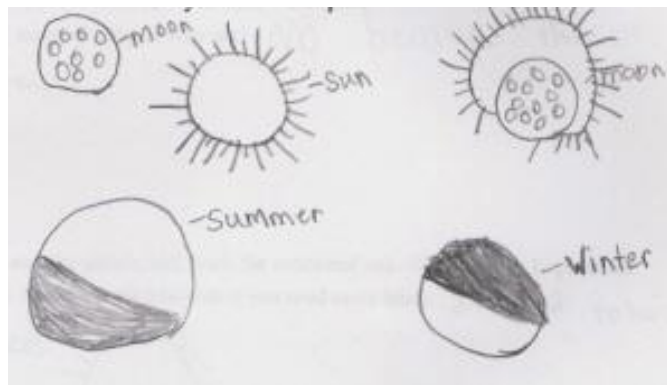 moon
Sun
moon
Summer
Winter